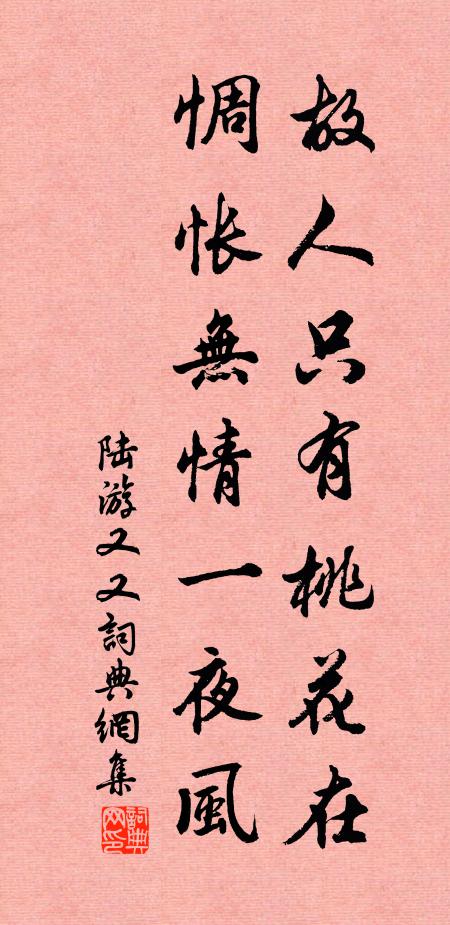 故人只有桃花在
惆怅無情一夜風
陆游又又詞典網集
詞典网印